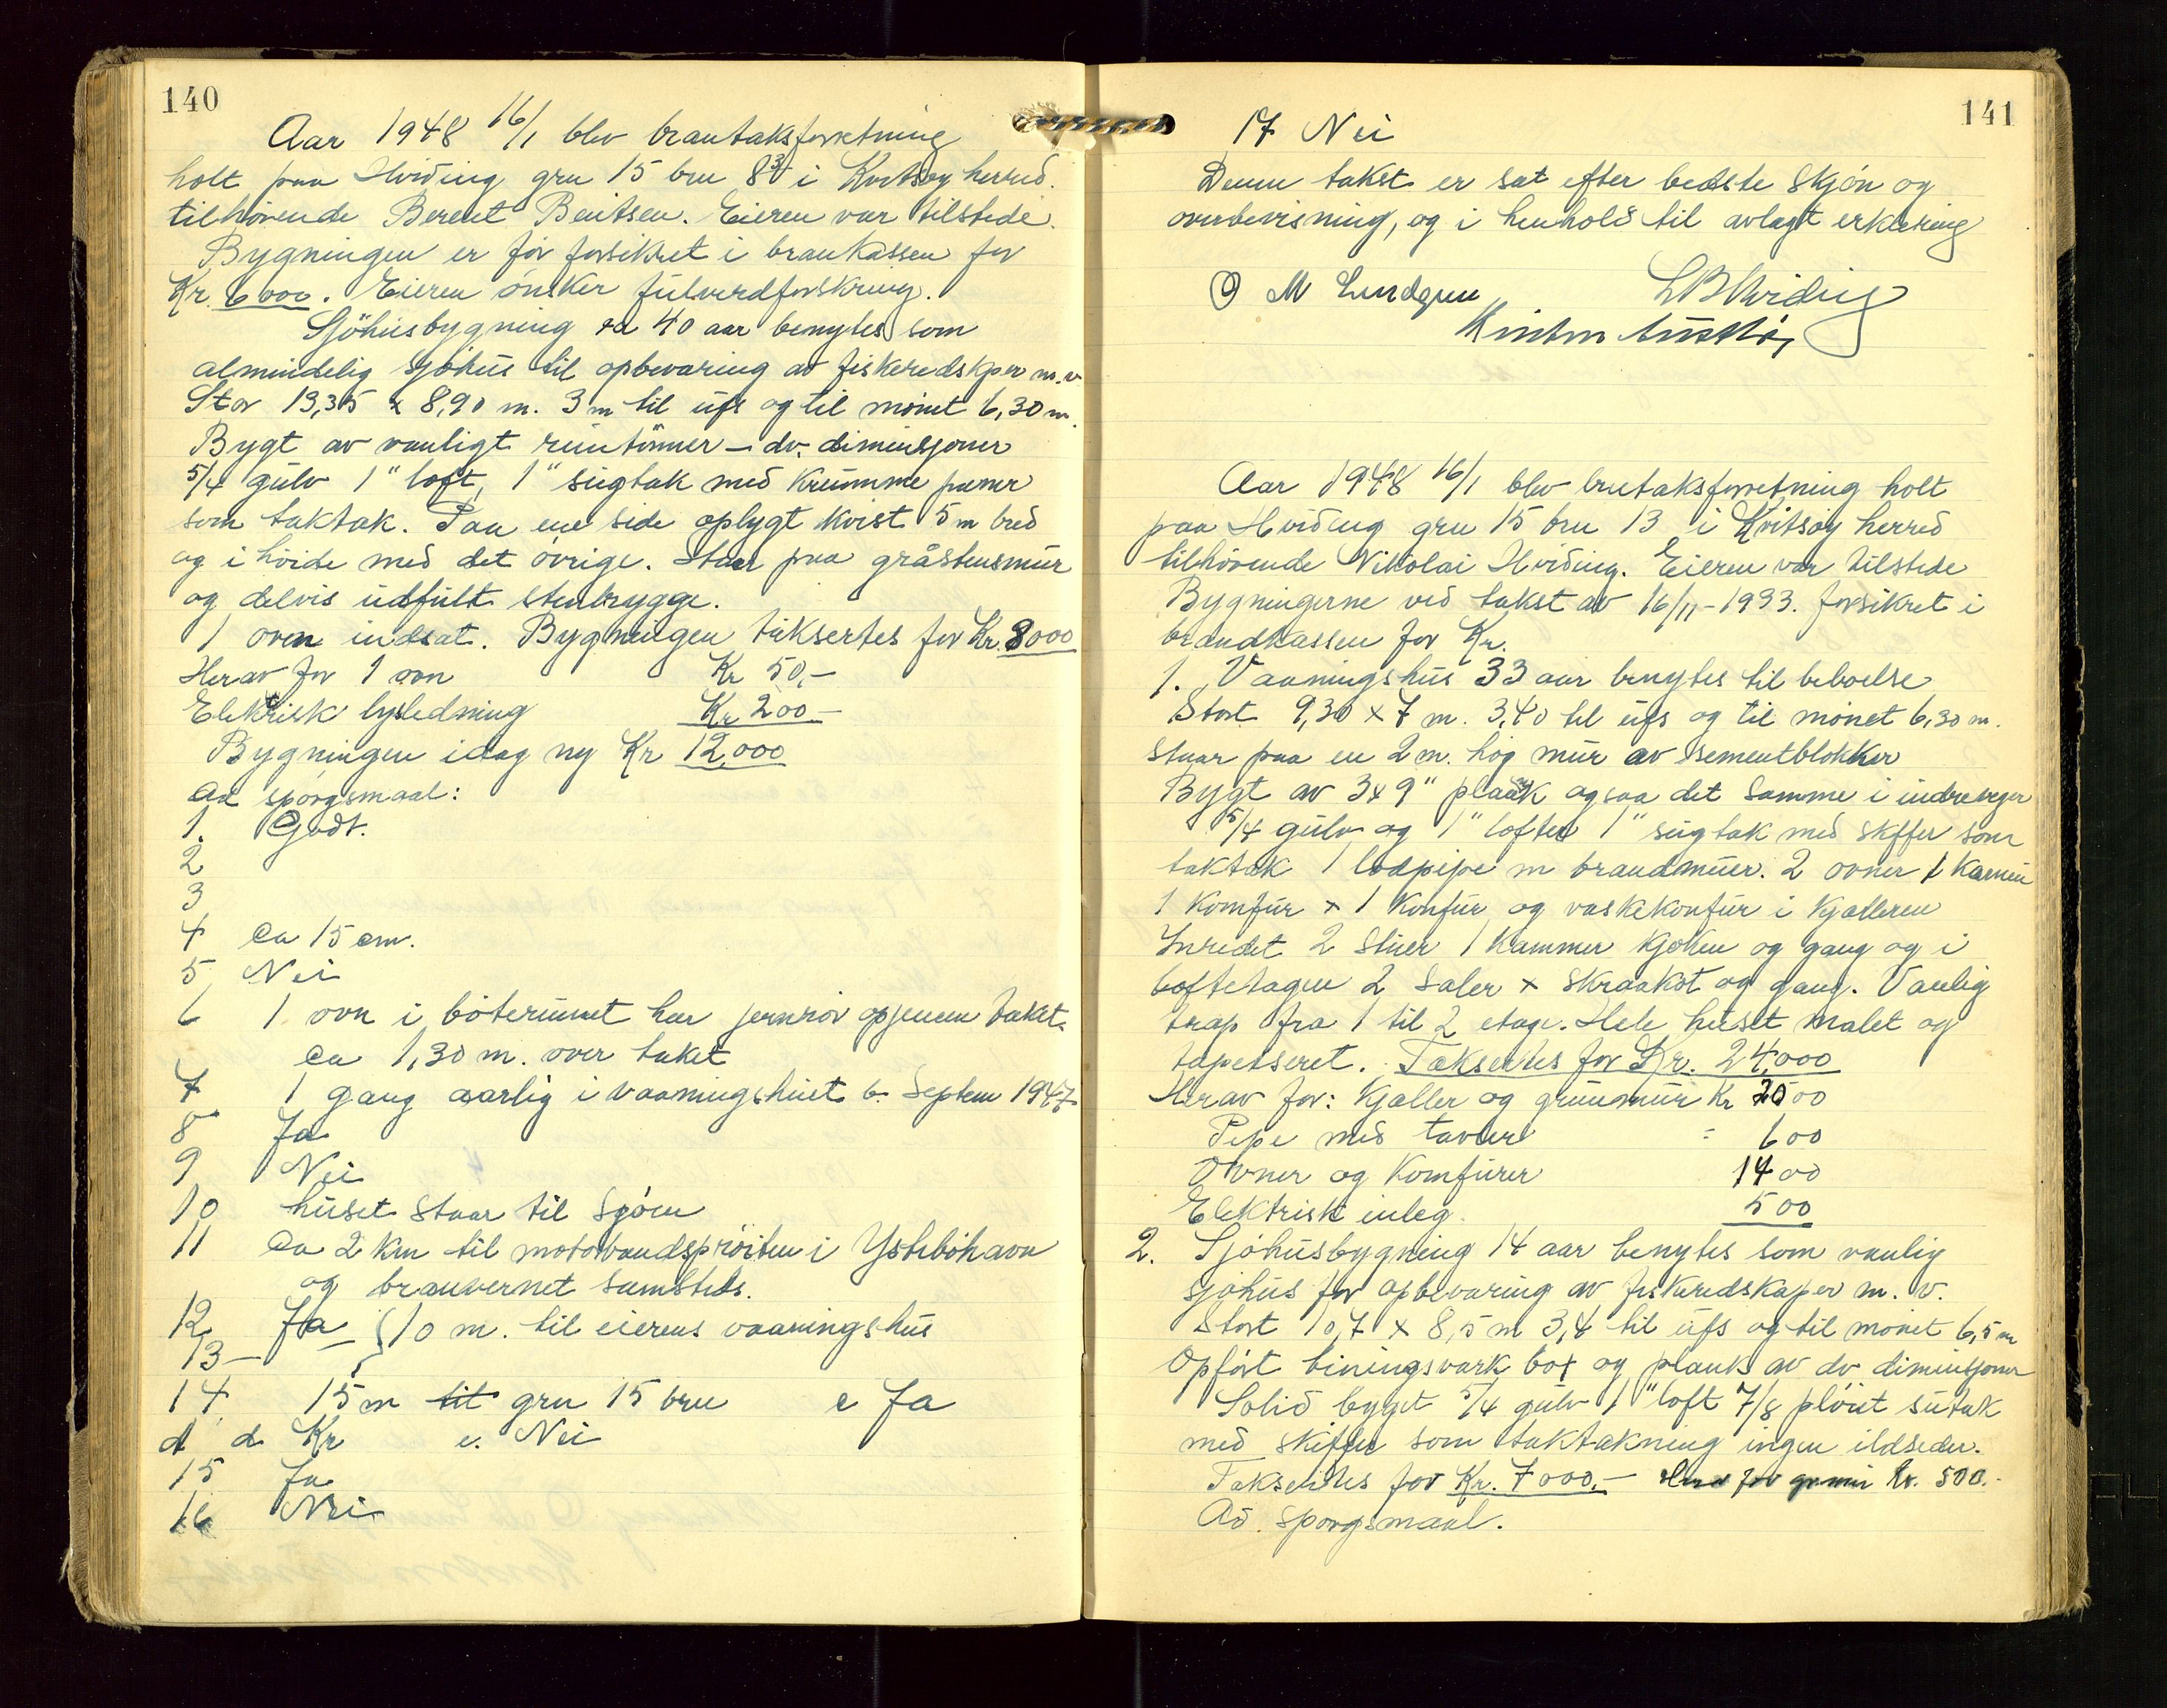 140
Aar 1948 16/1 blev brantaksforretning
holt paa Hviding gru 15 bru 83 i Kvitsøy herred.
tilhörende Berent Bentsen. Eieren var tilstede.
Bygningen er för forsikret i brankassen for
Kr. 6000. Eieren önsker fulverdforskring.
Sjöhusbygning ca 40 aar benytes som
almindelig sjöhus til opbevaring av fiskeredskper m.v
Stor 13,35 x 8,90 m. 3 m til ufs og til mönet 6,30 m.
Bygt av vanligt runtömer - dv. dimensjoner
5/4 gulv 1" loft, 1" sugtak med krumme panner
som taktak. Paa ene side oplygt kvist 5 m bred
og i höide med det övrige. Staar paa gråstensmur
og delvis udfült stenbrygge.
1 oven indsat. Bygningen taksertes for Kr. 8000
Herav for 1 ovn Kr 50,-
Elektrisk lysledning Kr 200 -
Bygningen idag ny Kr 12,000
Ad spörgsmaal:
1. Godt.
2
3
4 Ca 15 cm.
5 Nei
6 1 ovn i böterumet har jernrör opjenem taket.
Ca 1,30 m. over taket
7 1 gang aarlig i vaaningshuset 6. Septem 1947
8 Ja
9 Nei
10 huset staar til Sjöen
11 Ca 2 Km til motorvandspröiten i Ystebøhavn
og branvernet samsteds.
12 Ja { 10 m. til eierens vaaningshus
13 -
14 15 m til gru 15 bru c Ja
d d Kr e. Nei
15 Ja
16 Nei
141
17 Nei
Denne takst er sat efter bedste skjön og
overbevisning, og i henhold til avlagt erklæring
O M Lundgren L B Hviding
Aar 1948 16/1 blev brutaksforretning holt
paa Hviding gru 15 bru 13 i Kvitsøy herred
tilhörende Nikolai Hviding. Eieren var tilstede
Bygningerne ved takst av 16/11-1933. forsikret i
brandkassen for Kr.
1. Vaaningshus 33 aar benytes til beboelse
Stort 9,30 x 7 m. 3,40 til ufs og til mönet 6,30 m.
staar paa en 2 m. hög mur av sementblokker
Bygt av 3x9" plank ogsaa det samme i indreveger
5/4 gulv og 1" lofter 1" sugtak med skffer som
taktak 1 lodpipe m brandmuer. 2 ovner 1 Kamin
1 Komfur x 1 Konfur og vaskekonfur i Kjalleren
Inredet 2 Stuer 1 Kammer Kjöken og gang og i
loftetagen 2 saler x skraakot og gang. Vanlig
trap fra 1 til 2 etage. Hele huset malet og
tapetseret. Taksertes for Kr. 24,000
Herav for: Kjaller og grunmur Kr 2500
Pipe med tavler = 600
Ovner og Komfurer 1400
Elektrisk inleg. 500
2. Sjöhusbygning 14 aar benytes som vanlig
sjöhus for opbevaring av fiskeredskaper m. v.
Stort 10,7 x 8,5 m 3,4 til ufs og til mönet 6,5 m
Opfört biningsvark bot og plank av dv. dimensjoner
Solid byget 5/4 gulv 1" loft 7/8 plöiet sutak
med skiffer som taktakning ingen ildseder.
Taksertes for Kr. 7000.- Herav for gr mur Kr. 500.-
Ad. spörgsmaal.